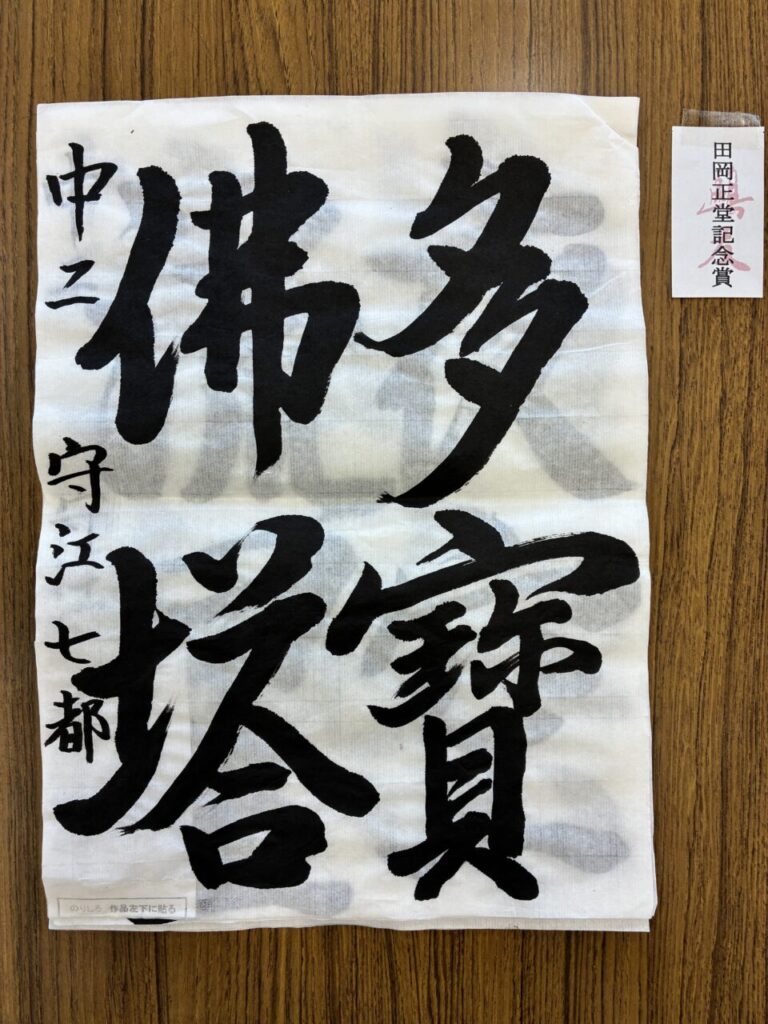 田岡正堂記念賞
多寳
佛塔
中二 守江七都
のりしろ 作品左下に貼る